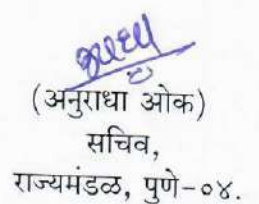 (अनुराधा ओक)
सचिव,
राज्यमंडळ, पुणे-०४.